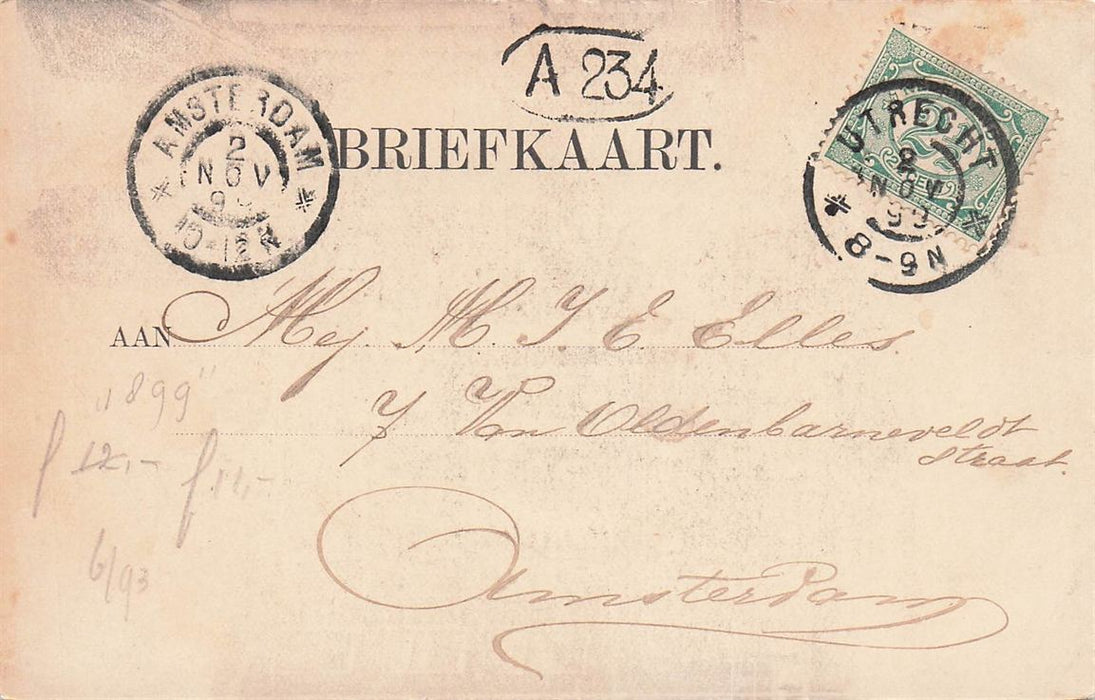 A 234
AMSTERDAM
2
NOV
99
10-12N
BRIEFKAART.
UTRECHT
2
NOV
99
8-9N
AAN Mej. M. J. E. Elles.
7 Van Oldenbarneveldt
straat.
Amsterdam
"1899"
f 12,- f 11,-
6/93